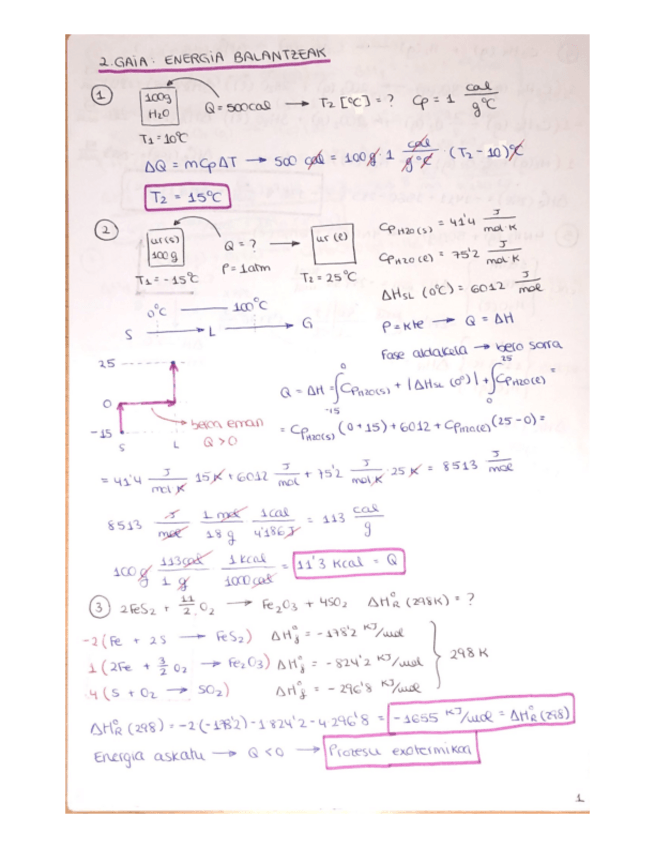 2.GAIA: ENERGIA BALANTZEAK
① 100g H2O Q=500cal → T2 [ºC] = ? Cp = 1 cal/gºC
T1=10ºC
ΔQ = mCpΔT → 500 cal = 100g·1 cal/gºC · (T2-10)ºC
T2 = 15ºC
② ur(s) 100g Q=? → ur(l) CpH2O(s) = 41'4 J/mol·K
P=1atm CpH2O(l) = 75'2 J/mol·K
T1=-15ºC T2=25ºC ΔHSL (0ºC) = 6012 J/mol
0ºC — 100ºC
S → L → G
P=kte → Q = ΔH
Fase aldaketa → bero sorra
25
0
-15
S L
beroa eman
Q>0
Q = ΔH = ∫-15^0 CpH2O(s) + |ΔHSL (0º)| + ∫0^25 CpH2O(l) =
= CpH2O(s) (0+15) + 6012 + CpH2O(l) (25-0) =
= 41'4 J/mol K 15K + 6012 J/mol + 75'2 J/mol·K · 25K = 8513 J/mol
8513 J/mol 1 mol/18 g 1cal/4'186J = 113 cal/g
100g 113cal/1 g 1 kcal/1000cal = 11'3 Kcal = Q
③ 2FeS2 + 11/2 O2 → Fe2O3 + 4SO2 ΔHºR (298K) = ?
-2 (Fe + 2S → FeS2) ΔHºf = -178'2 KJ/mol
1 (2Fe + 3/2 O2 → Fe2O3) ΔHºf = -824'2 KJ/mol 298 K
4 (S + O2 → SO2) ΔHºf = -296'8 KJ/mol
ΔHºR (298) = -2(-178'2) - 1 824'2 - 4 296'8 = -1655 KJ/mol = ΔHºR (298)
Energia askatu → Q<0 → Prozesu exotermikoa
1